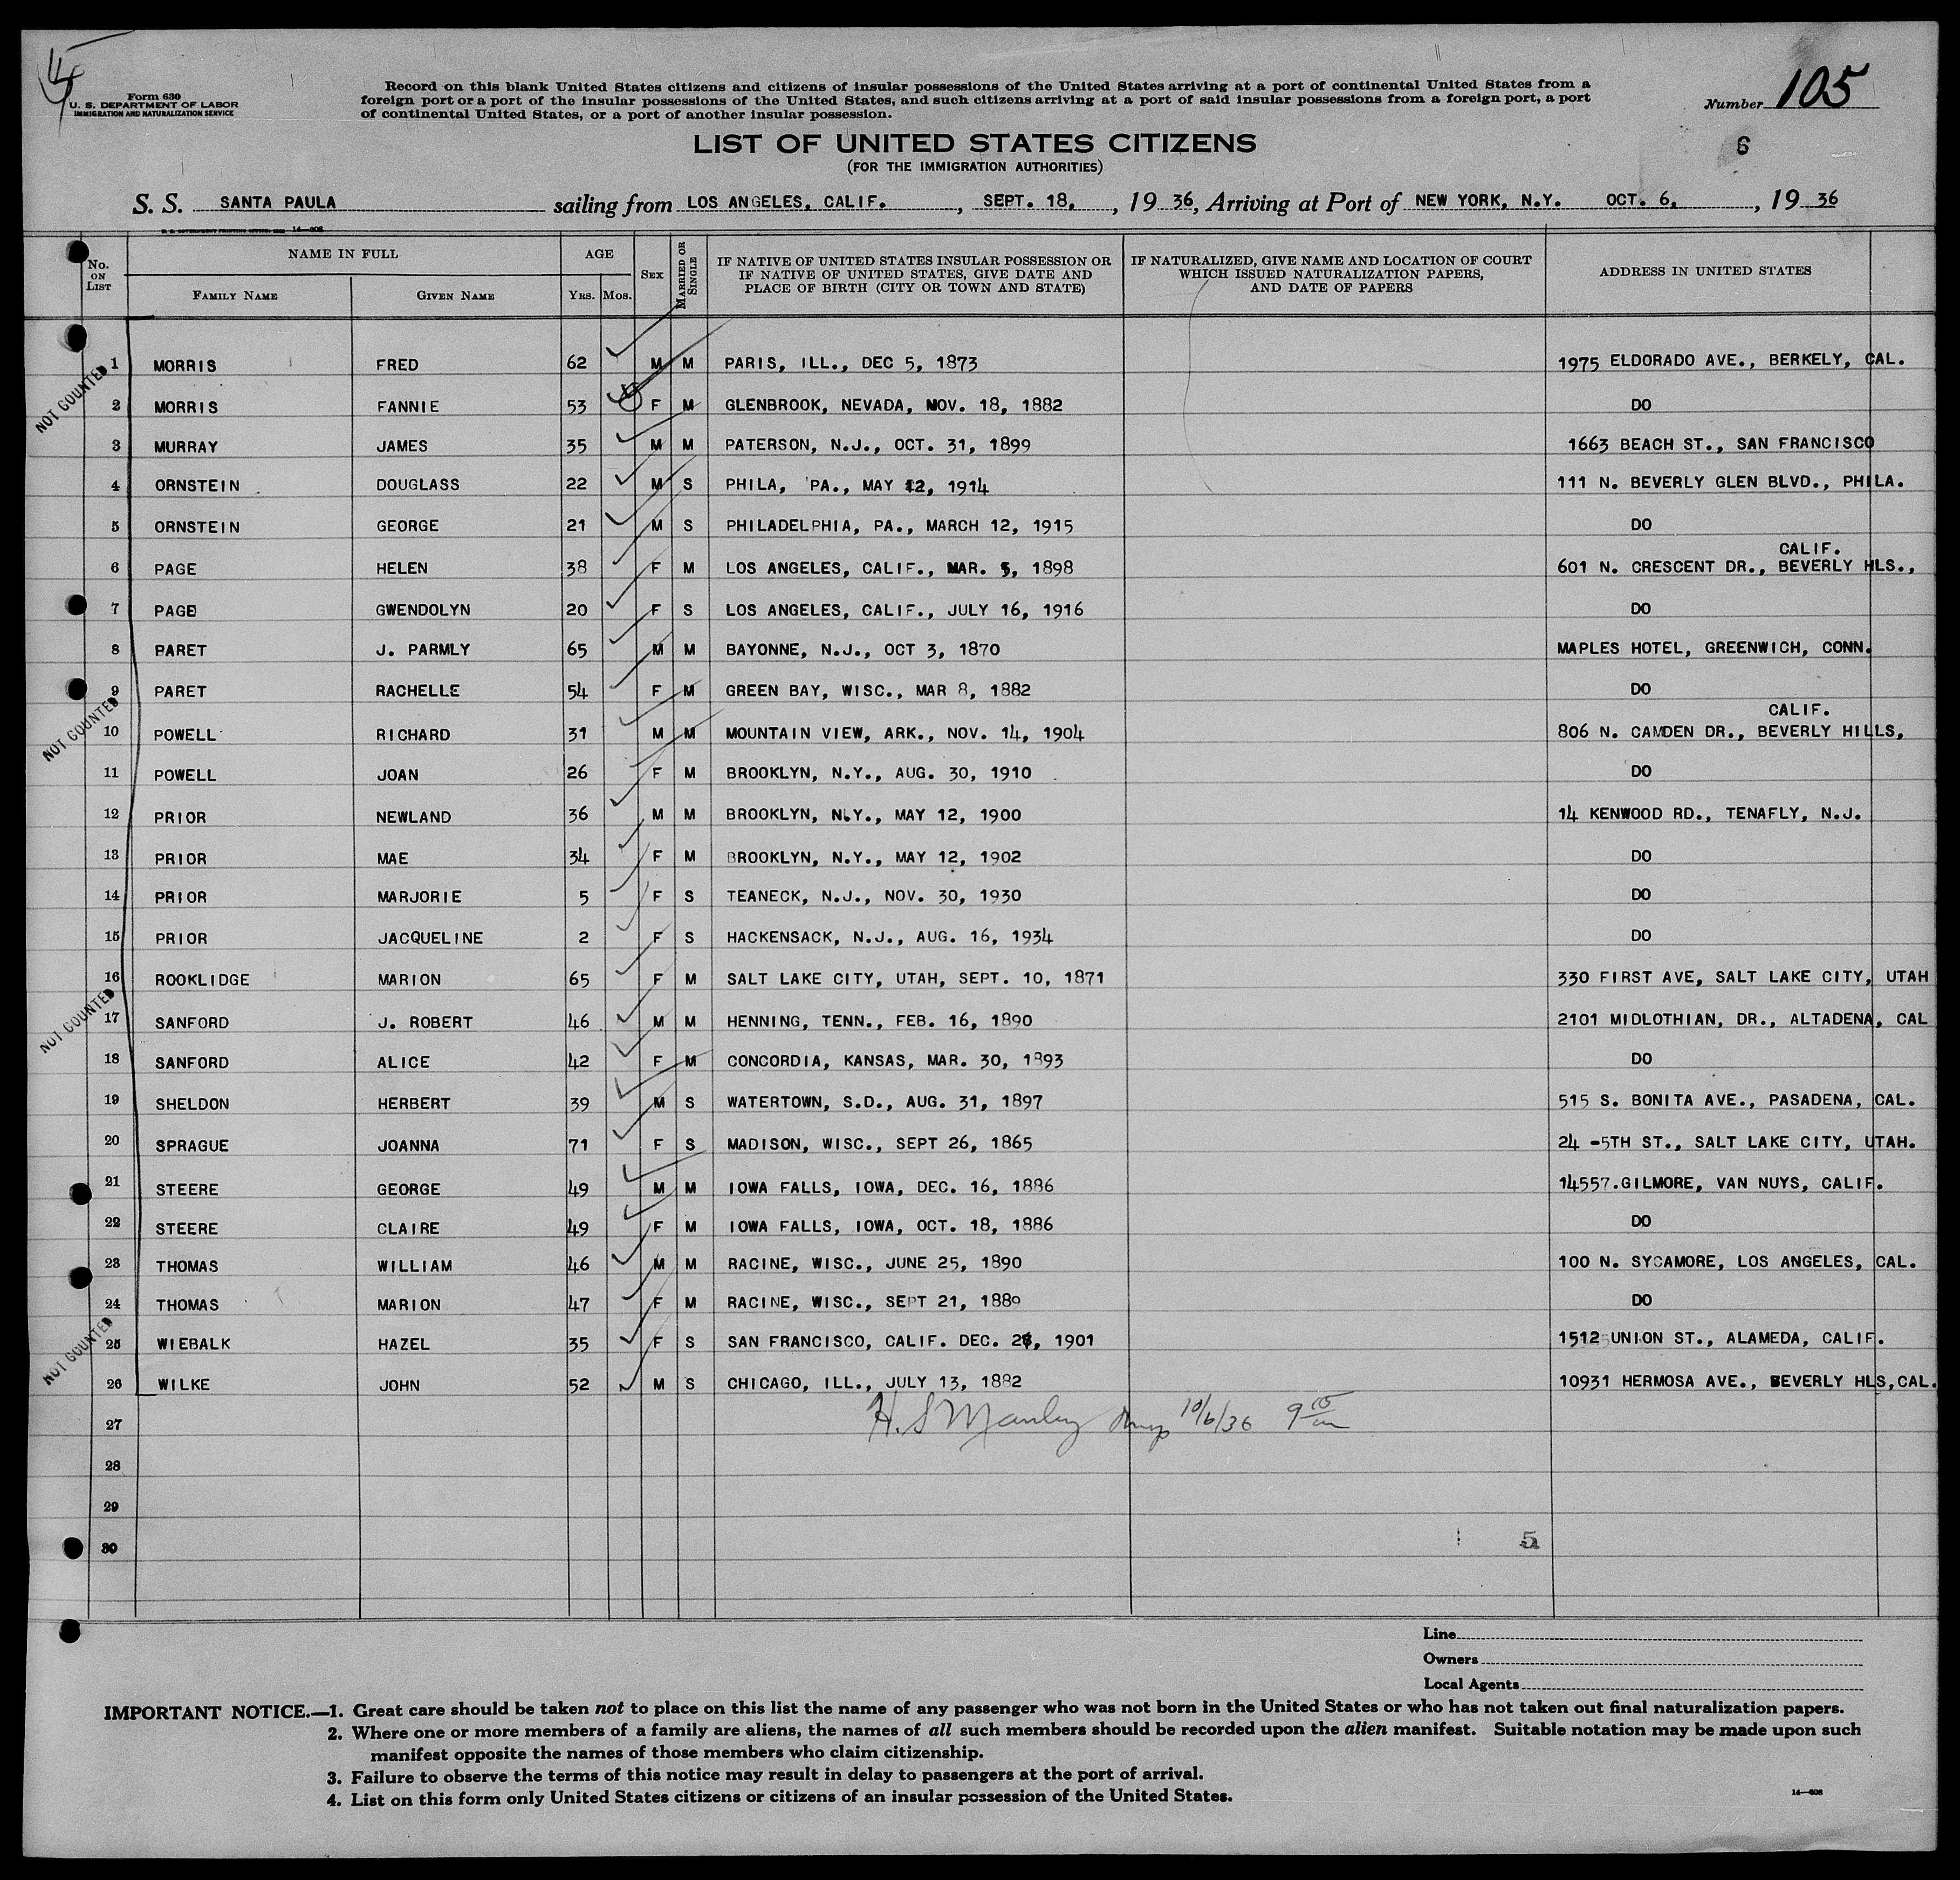 Form 630
U. S. DEPARTMENT OF LABOR
IMMIGRATION AND NATURALIZATION SERVICE
Record on this blank United States citizens and citizens of insular possessions of the United States arriving at a port of continental United States from a
foreign port or a port of the insular possessions of the United States, and such citizens arriving at a port of said insular possessions from a foreign port, a port
of continental United States, or a port of another insular possession.
Number 105
LIST OF UNITED STATES CITIZENS
6
(FOR THE IMMIGRATION AUTHORITIES)
S. S. SANTA PAULA sailing from LOS ANGELES, CALIF. , SEPT. 18, , 19 36, Arriving at Port of NEW YORK, N.Y. OCT. 6, , 19 36
14—608
No. ON LIST NAME IN FULL FAMILY NAME GIVEN NAME AGE YRS. MOS. SEX MARRIED OR SINGLE IF NATIVE OF UNITED STATES INSULAR POSSESSION OR IF NATIVE OF UNITED STATES, GIVE DATE AND PLACE OF BIRTH (CITY OR TOWN AND STATE) IF NATURALIZED, GIVE NAME AND LOCATION OF COURT WHICH ISSUED NATURALIZATION PAPERS, AND DATE OF PAPERS ADDRESS IN UNITED STATES
1 MORRIS FRED 62 M M PARIS, ILL., DEC 5, 1873 1975 ELDORADO AVE., BERKELY, CAL.
NOT COUNTED
2 MORRIS FANNIE 53 F M GLENBROOK, NEVADA, NOV. 18, 1882 DO
3 MURRAY JAMES 35 M M PATERSON, N.J., OCT. 31, 1899 1663 BEACH ST., SAN FRANCISCO
4 ORNSTEIN DOUGLASS 22 M S PHILA, PA., MAY 12, 1914 111 N. BEVERLY GLEN BLVD., PHILA.
5 ORNSTEIN GEORGE 21 M S PHILADELPHIA, PA., MARCH 12, 1915 DO
CALIF.
6 PAGE HELEN 38 F M LOS ANGELES, CALIF., MAR. 5, 1898 601 N. CRESCENT DR., BEVERLY HLS.,
7 PAGE GWENDOLYN 20 F S LOS ANGELES, CALIF., JULY 16, 1916 DO
8 PARET J. PARMLY 65 M M BAYONNE, N.J., OCT 3, 1870 MAPLES HOTEL, GREENWICH, CONN.
9 PARET RACHELLE 54 F M GREEN BAY, WISC., MAR 8, 1882 DO
NOT COUNTED
CALIF.
10 POWELL RICHARD 31 M M MOUNTAIN VIEW, ARK., NOV. 14, 1904 806 N. CAMDEN DR., BEVERLY HILLS,
11 POWELL JOAN 26 F M BROOKLYN, N.Y., AUG. 30, 1910 DO
12 PRIOR NEWLAND 36 M M BROOKLYN, N.Y., MAY 12, 1900 14 KENWOOD RD., TENAFLY, N.J.
13 PRIOR MAE 34 F M BROOKLYN, N.Y., MAY 12, 1902 DO
14 PRIOR MARJORIE 5 F S TEANECK, N.J., NOV. 30, 1930 DO
15 PRIOR JACQUELINE 2 F S HACKENSACK, N.J., AUG. 16, 1934 DO
16 ROOKLIDGE MARION 65 F M SALT LAKE CITY, UTAH, SEPT. 10, 1871 330 FIRST AVE, SALT LAKE CITY, UTAH
NOT COUNTED
17 SANFORD J. ROBERT 46 M M HENNING, TENN., FEB. 16, 1890 2101 MIDLOTHIAN, DR., ALTADENA, CAL
18 SANFORD ALICE 42 F M CONCORDIA, KANSAS, MAR. 30, 1893 DO
19 SHELDON HERBERT 39 M S WATERTOWN, S.D., AUG. 31, 1897 515 S. BONITA AVE., PASADENA, CAL.
20 SPRAGUE JOANNA 71 F S MADISON, WISC., SEPT 26, 1865 24 -5TH ST., SALT LAKE CITY, UTAH.
21 STEERE GEORGE 49 M M IOWA FALLS, IOWA, DEC. 16, 1886 14557.GILMORE, VAN NUYS, CALIF.
22 STEERE CLAIRE 49 F M IOWA FALLS, IOWA, OCT. 18, 1886 DO
23 THOMAS WILLIAM 46 M M RACINE, WISC., JUNE 25, 1890 100 N. SYCAMORE, LOS ANGELES, CAL.
24 THOMAS MARION 47 F M RACINE, WISC., SEPT 21, 1889 DO
NOT COUNTED
25 WIEBALK HAZEL 35 F S SAN FRANCISCO, CALIF. DEC. 1901 1512 UNION ST., ALAMEDA, CALIF.
26 WILKE JOHN 52 M S CHICAGO, ILL., JULY 13, 1882 10931 HERMOSA AVE., BEVERLY HLS,CAL.
27 H. S Manley 10/6/36 9 15 am
28
29
30 5
Line
Owners
Local Agents
IMPORTANT NOTICE.—1. Great care should be taken not to place on this list the name of any passenger who was not born in the United States or who has not taken out final naturalization papers.
2. Where one or more members of a family are aliens, the names of all such members should be recorded upon the alien manifest. Suitable notation may be made upon such
manifest opposite the names of those members who claim citizenship.
3. Failure to observe the terms of this notice may result in delay to passengers at the port of arrival.
4. List on this form only United States citizens or citizens of an insular possession of the United States.
14—608